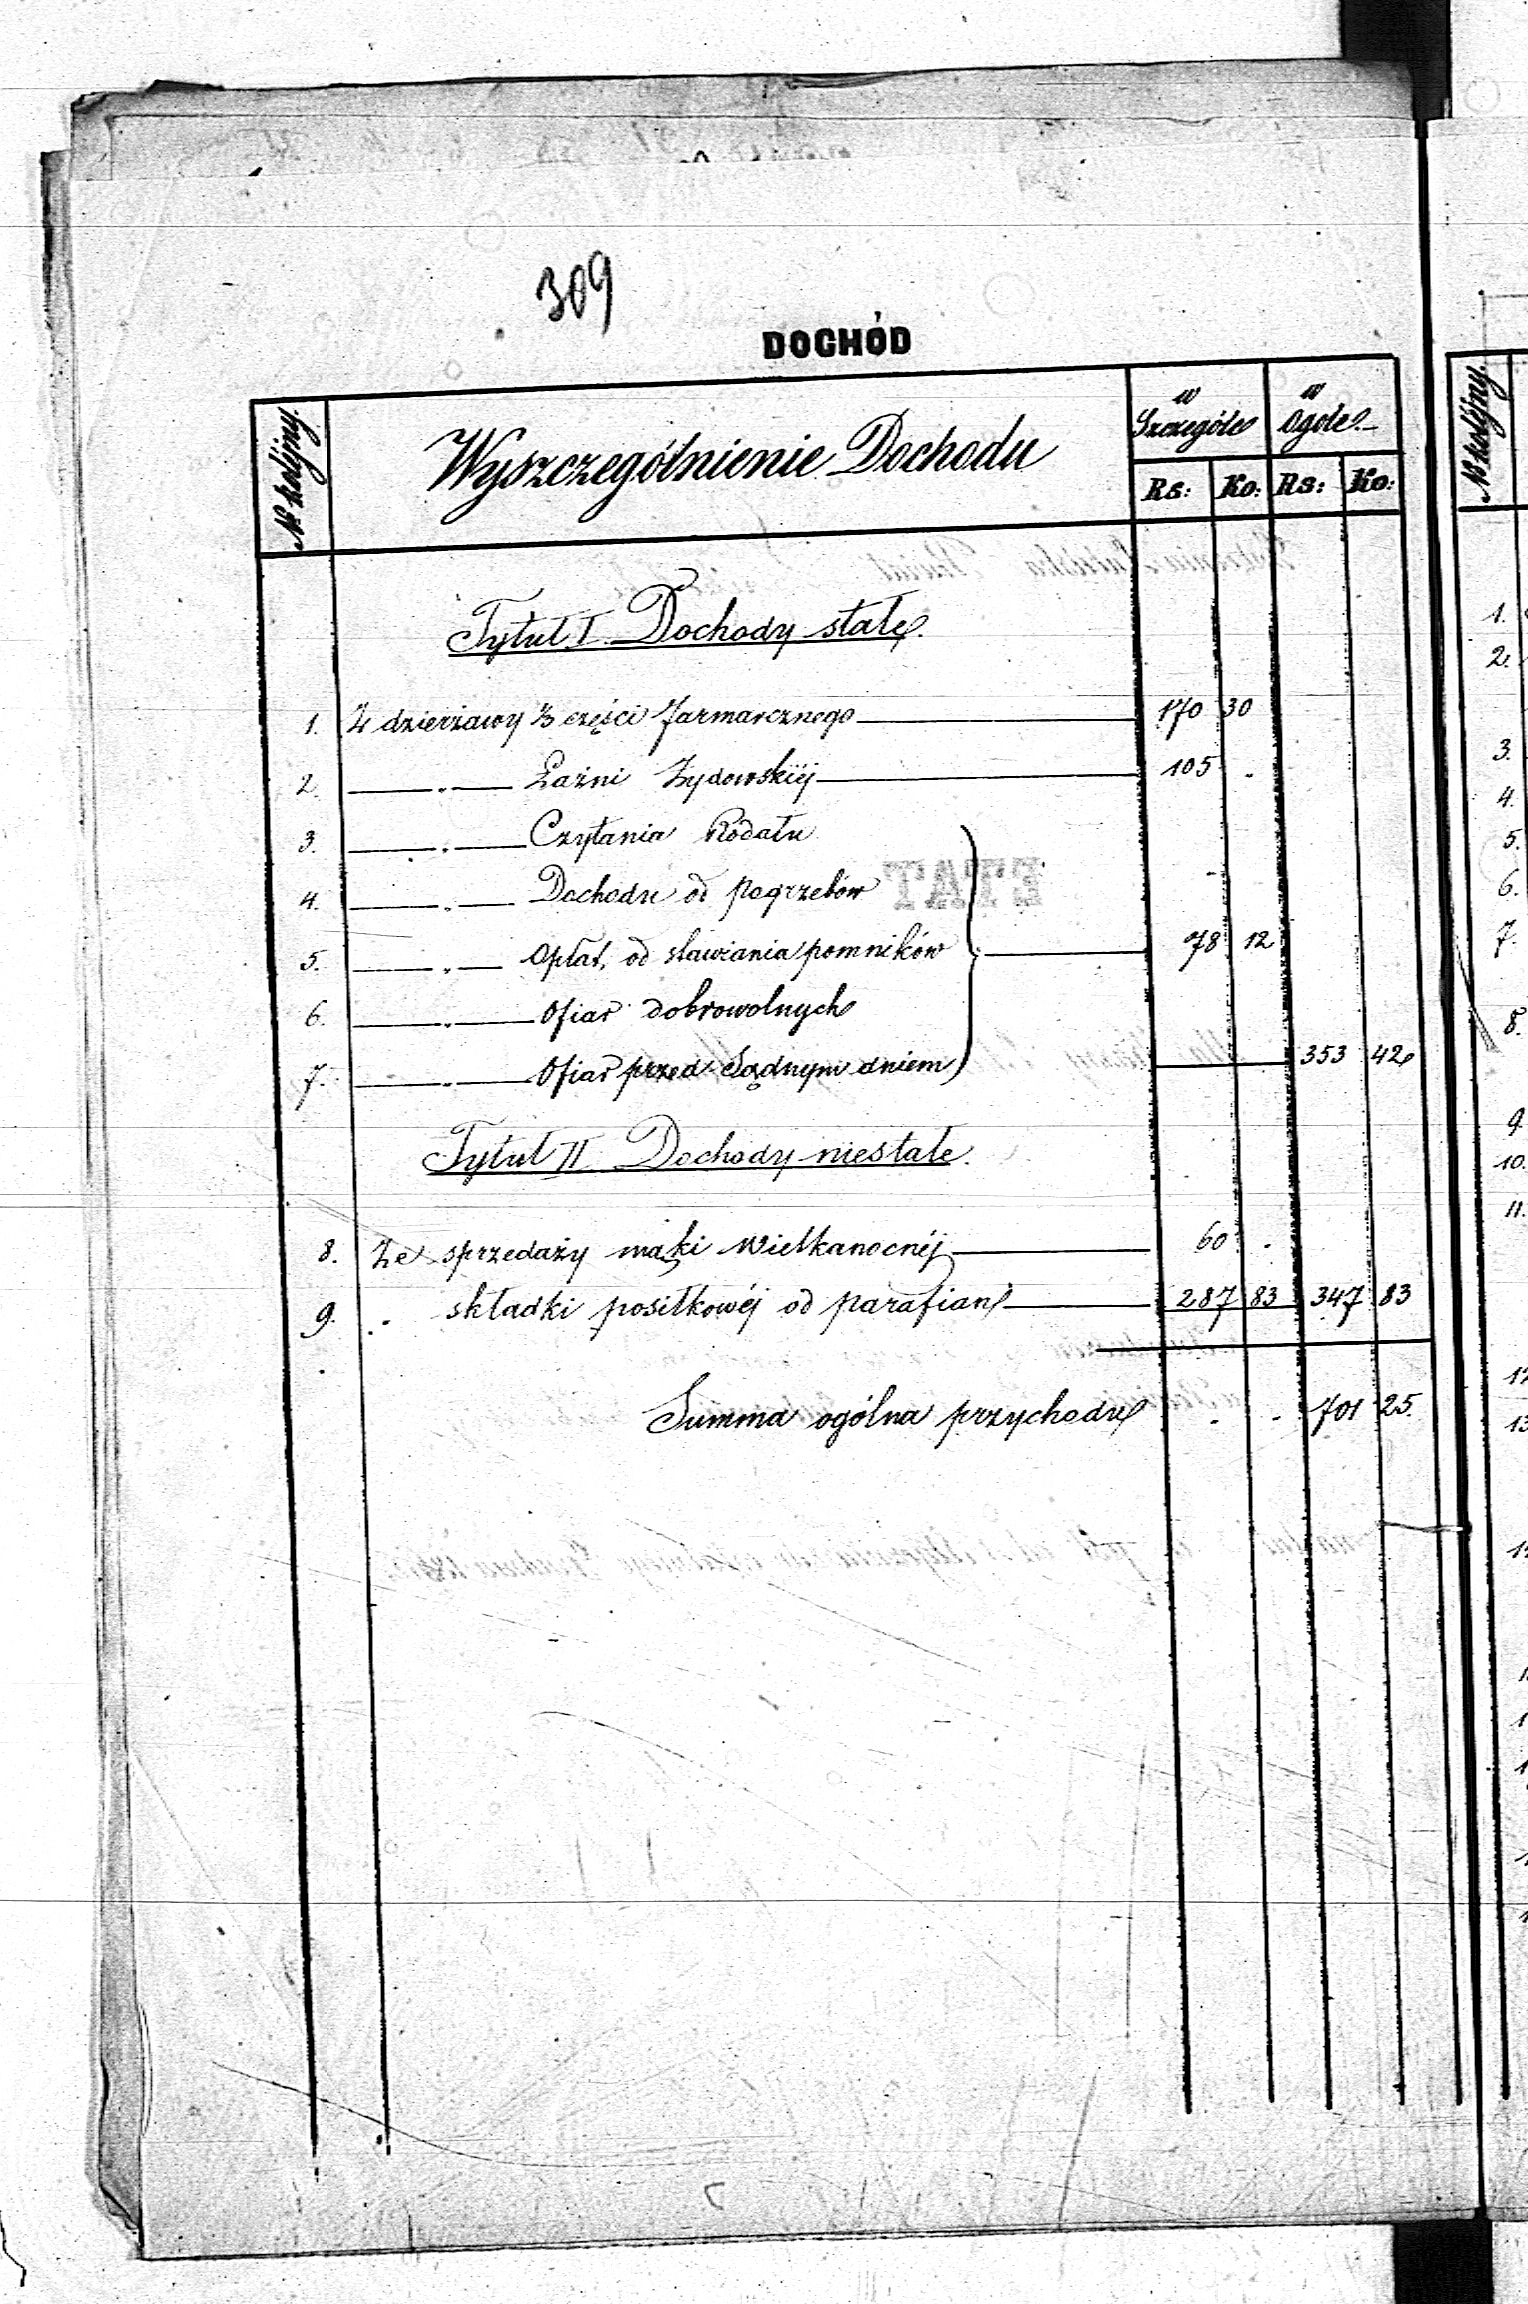 309
DOCHÓD
№ kolijny.
Wyszczególnienie Dochodu
w Szczególe
w Ogóle
Rs: Ko: Rs: Ko:
Tytuł I. Dochody stałe.
1. Z dzierżawy ⅓ części Jarmarcznego 170 30
2. " Łaźni Żydowskiéj 105 .
3. " Czytania Rodału
4. " Dochodu od pogrzebów
5. " Opłat, od stawiania pomników 78 12
6. " Ofiar dobrowolnych
7. " Ofiar przed Sądnym dniem 353 42
Tytuł II Dochody niestałe.
8. Ze sprzedaży mąki Wielkanocnéj 60 .
9. " składki posiłkowéj od parafian 287 83 347 83
Summa ogólna przychodu . . 701 25.
№ kolijny.
1.
2.
3.
4.
5.
6.
7.
8.
9.
10.
11.